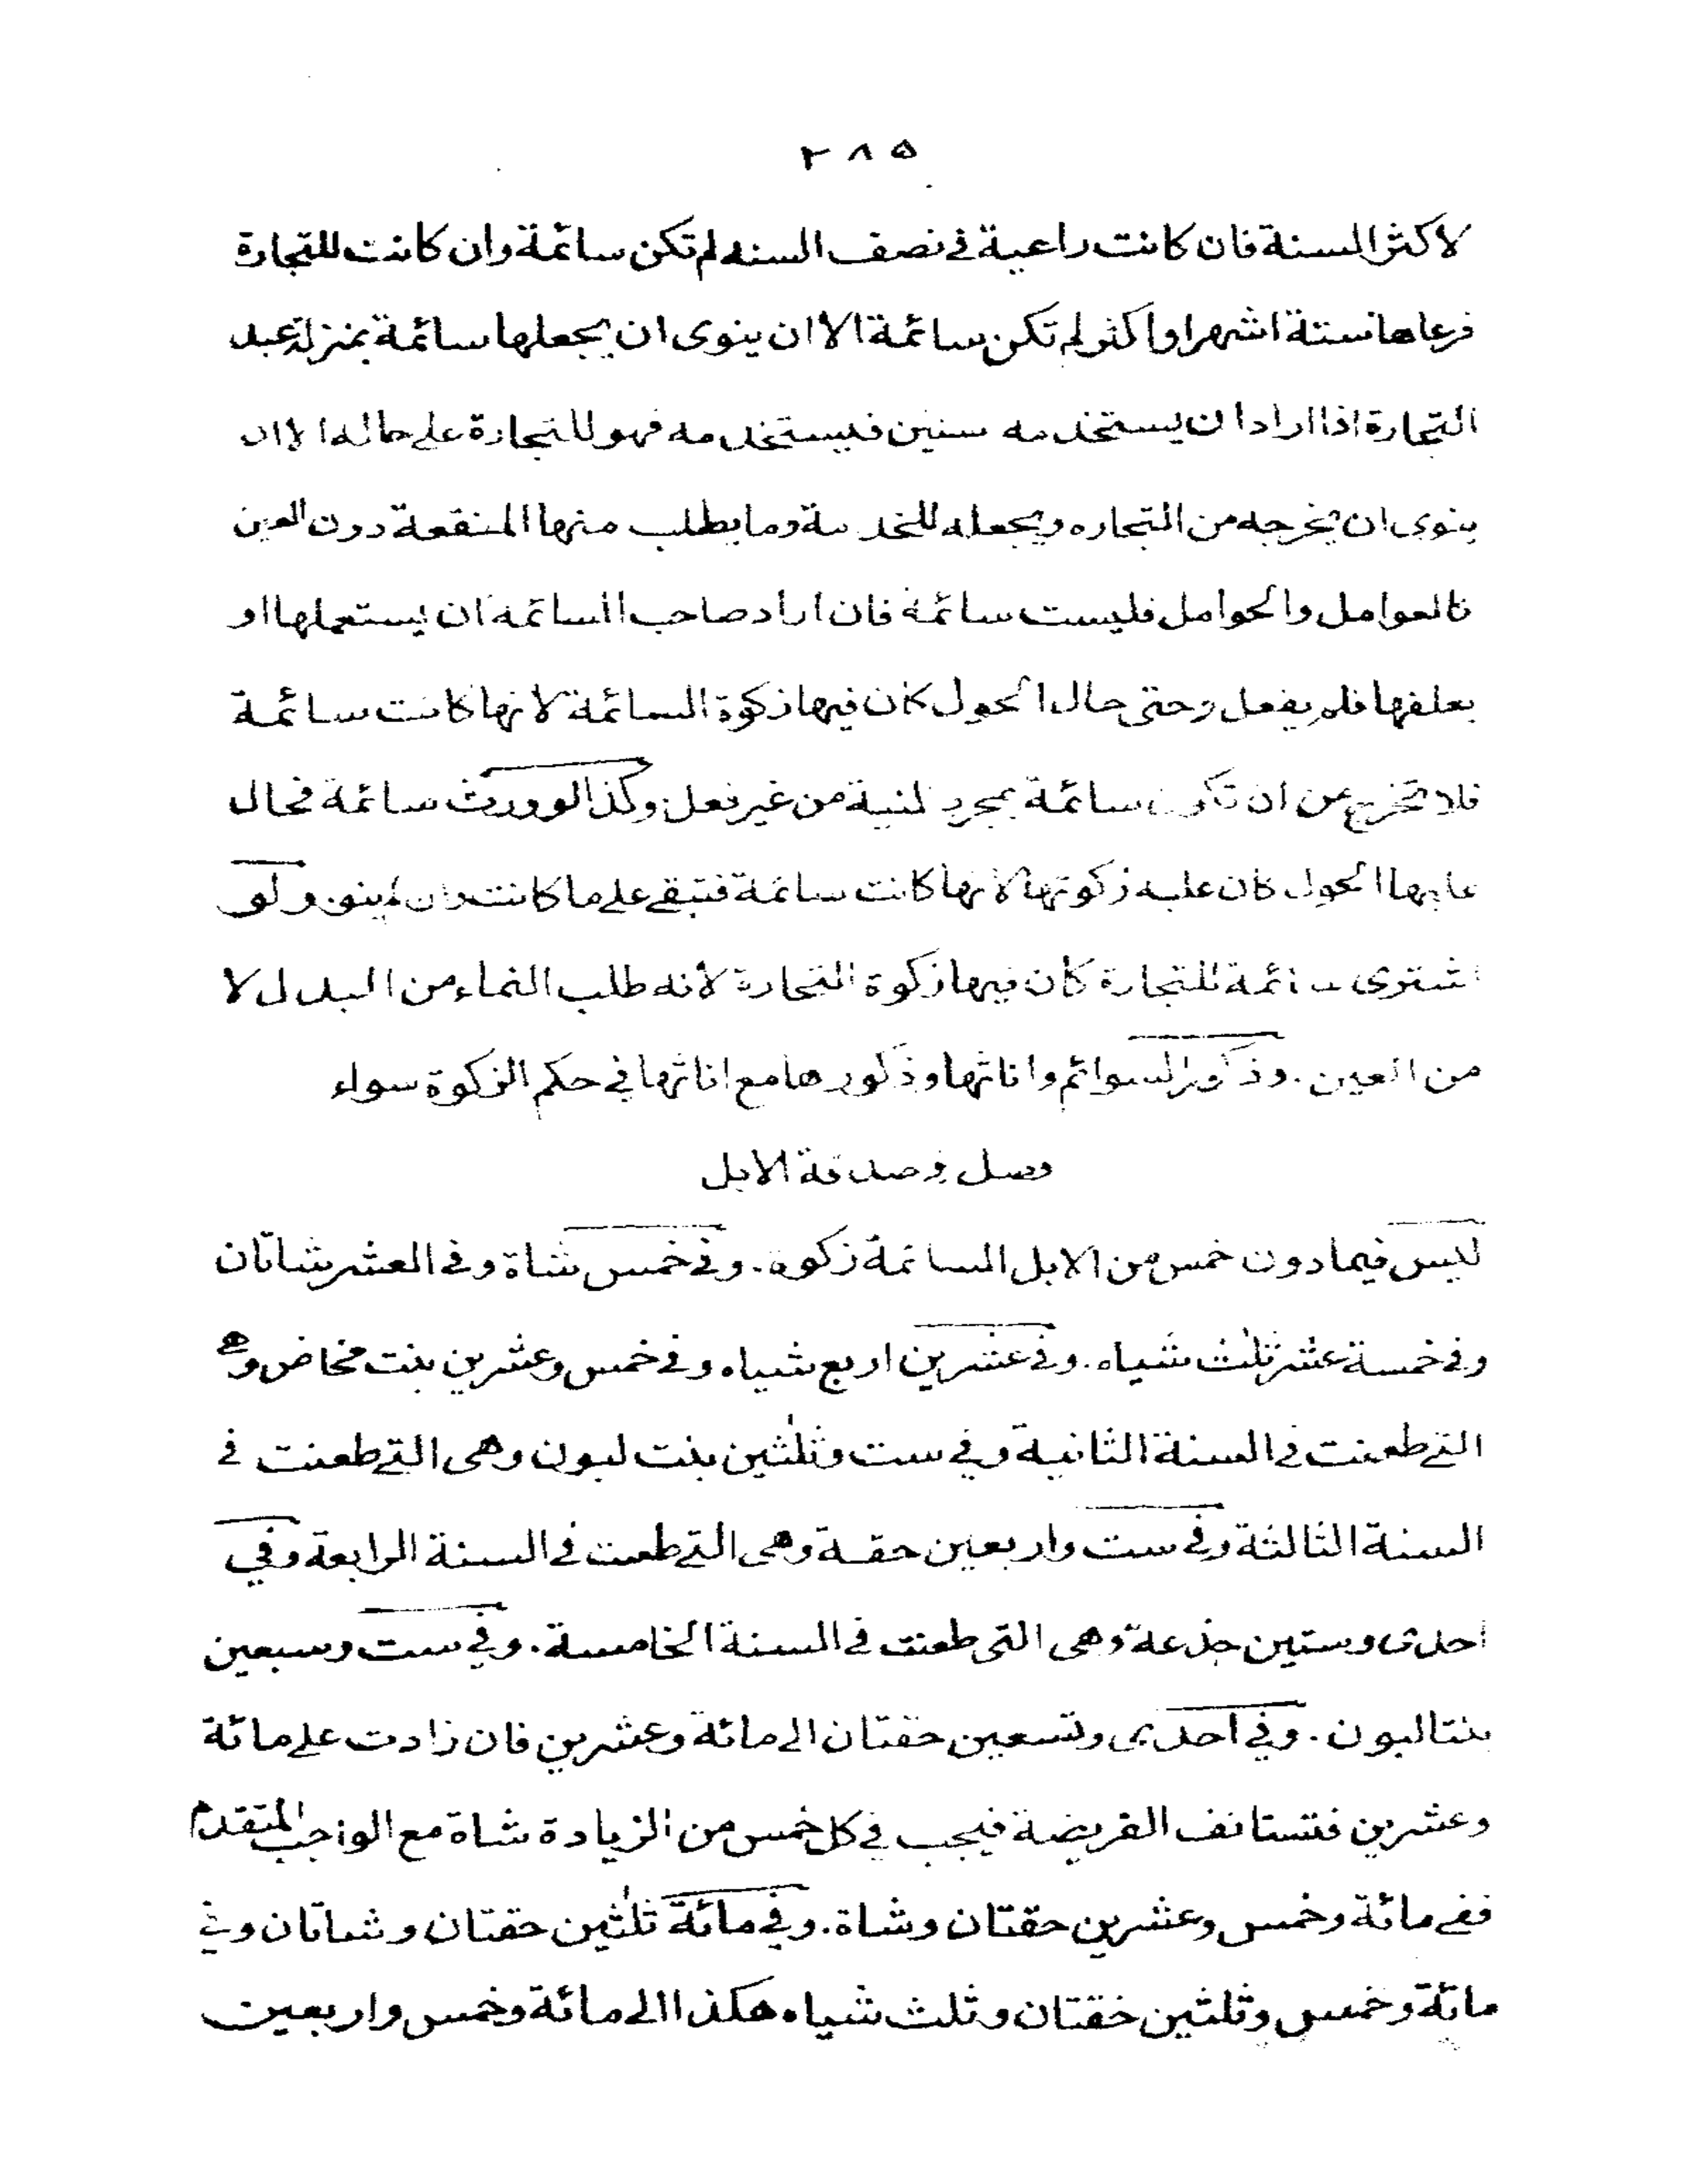 ٢٨٥
لاكثر السنة فان كانت راعية في نصف السنه لم تكن سائمة وان كانت للتجارة
فرعاها ستة اشهر او اكثر لم تكن سائمة الا ان ينوى ان يجعلها سائمة بمنزلة عبد
التجارة اذا اراد ان يستخدمه سنين فيستخدمه فهو للتجارة على حاله الا ان
ينوى ان يخرجه من التجاره ويجعله للخدمة وما يطلب منها المنفعة دون العين
كالعوامل والحوامل فليست سائمة فان اراد صاحب السائمة ان يستعملها او
يعلفها فلم يفعل حتى حال الحول كان فيها زكوة السائمة لانها كانت سائمة
فلا تخرج عن ان تكون سائمة بمجرد النية من غير فعل وكذا لو ورث سائمة فحال
عليها الحول كان عليه زكوتها لانها كانت سائمة فتبقى على ما كانت وان لم ينو ولو
اشترى سائمة للتجارة كان فيها زكوة التجارة لأنه طلب النماء من البدل لا
من العين . وذكور السوائم واناثها وذكورها مع اناثها في حكم الزكوة سواء
فصل في صدقة الابل
ليس فيما دون خمس من الابل السائمة زكوة . وفي خمس شاة وفي العشر شاتان
وفي خمسة عشر ثلث شياه . وفي عشرين اربع شياه وفي خمس وعشرين بنت مخاض وهي
التي طعنت في السنة الثانية وفي ست وثلثين بنت لبون وهى التي طعنت في
السنة الثالثة وفي ست واربعين حقة وهى التي طعنت في السنة الرابعة وفي
احدى وستين جذعة وهى التى طعنت في السنة الخامسة . وفي ست وسبعين
بنتا لبون . وفي احدى وتسعين حقتان الى مائة وعشرين فان زادت على مائة
وعشرين فتستانف الفريضة فيجب في كل خمس من الزيادة شاة مع الواجب المتقدم
ففي مائة وخمس وعشرين حقتان وشاة . وفي مائة ثلثين حقتان وشاتان وفي
مائة وخمس وثلثين حقتان وثلث شياه هكذا الى مائة وخمس واربعين